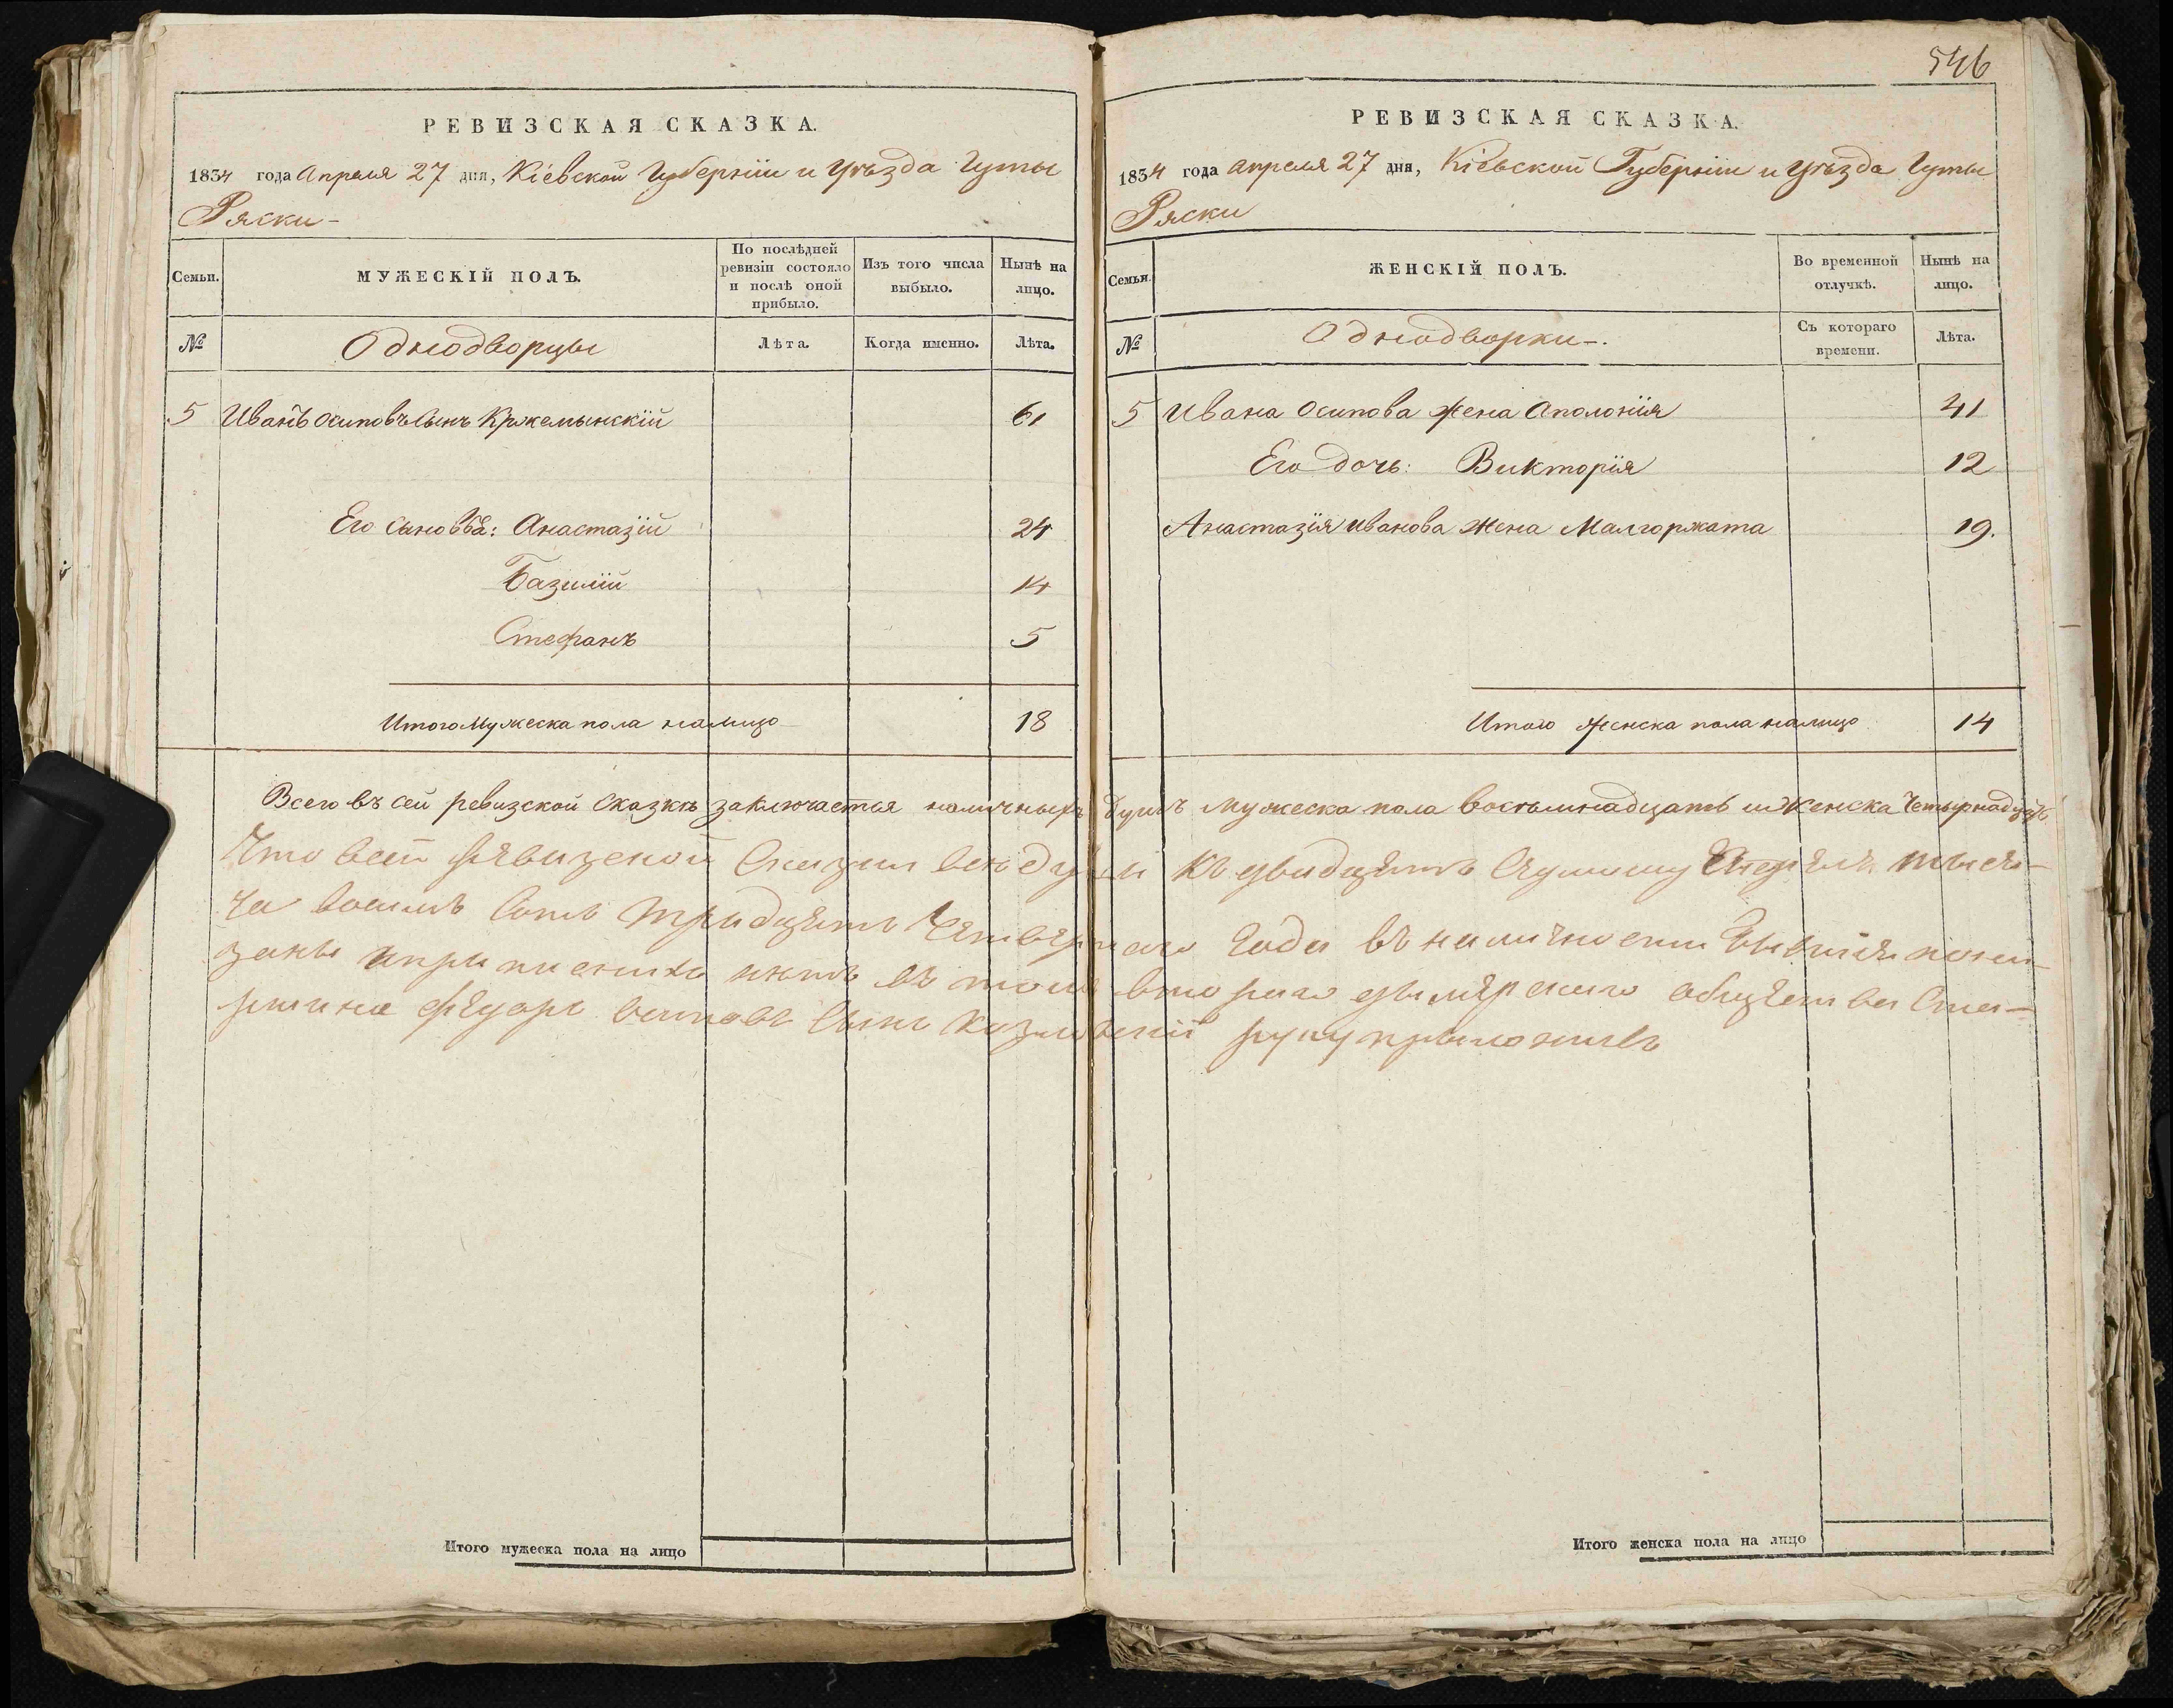 546
РЕВИЗСКАЯ СКАЗКА.
1834 года Апреля 27 дня, Кіевской Губерніи и Уѣзда Гуты
Ряски-
Семьи.
МУЖЕСКІЙ ПОЛЪ.
По послѣдней ревизіи состояло и послѣ оной прибыло.
Изъ того числа выбыло.
Нынѣ на лицо.
№
Однодворцы
Лѣта.
Когда именно.
Лѣта.
5 Иванъ Осиповъ Сынъ Кржемынскій 61
Его Сыновья: Анастазій 24
Базилій 14
Стефанъ 5
Итого Мужеска пола налицо 18
РЕВИЗСКАЯ СКАЗКА.
1834 года Апреля 27 дня, Кіевской Губерніи и Уѣзда Гуты
Ряски
Семьи.
ЖЕНСКІЙ ПОЛЪ.
Во временной отлучкѣ.
Нынѣ на лицо.
№
Однодворки-.
Съ котораго времени.
Лѣта.
5 Ивана Осипова жена Аполонія 41
Его дочь: Викторія 12
Анастазія Иванова жена Малгоржата 19.
Итого Женска пола налицо 14
Всего въ сей ревизской сказкѣ заключается наличныхъ душъ мужеска пола восемьнадцать и женска четырнадцать
Что всей рявизской Сказки всѣ души къ двадцять Сушому тысе-
ча восимъ сотъ тридцять Чятвяртаго Года въ наличности пока-
заны и приписнихъ нѣтъ въ томъ втораго дымярскаго общяства Ста-
ршина сынъ руку приложилъ
Итого мужеска пола на лицо
Итого женска пола на лицо